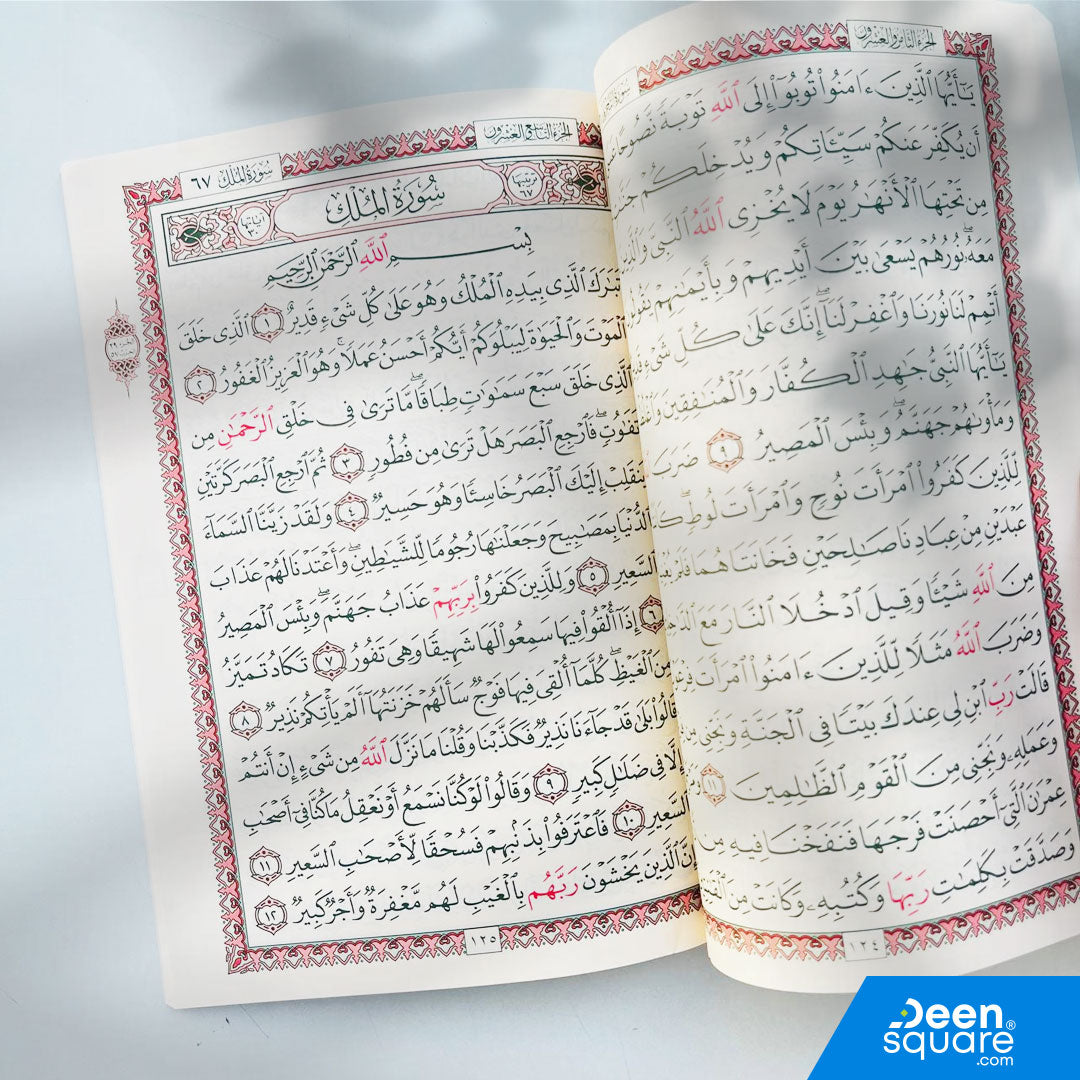 الجزء الثامن والعشرون
يَٰٓأَيُّهَا ٱلَّذِينَ ءَامَنُوا۟ تُوبُوٓا۟ إِلَى ٱللَّهِ تَوْبَةً نَّصُوحًا
أَن يُكَفِّرَ عَنكُمْ سَيِّـَٔاتِكُمْ وَيُدْخِلَكُمْ
مِن تَحْتِهَا ٱلْأَنْهَٰرُ يَوْمَ لَا يُخْزِى ٱللَّهُ ٱلنَّبِىَّ
مَعَهُۥ نُورُهُمْ يَسْعَىٰ بَيْنَ أَيْدِيهِمْ وَبِأَيْمَٰنِهِمْ
أَتْمِمْ لَنَا نُورَنَا وَٱغْفِرْ لَنَآ إِنَّكَ عَلَىٰ كُلِّ شَىْءٍ
يَٰٓأَيُّهَا ٱلنَّبِىُّ جَٰهِدِ ٱلْكُفَّارَ وَٱلْمُنَٰفِقِينَ
وَمَأْوَىٰهُمْ جَهَنَّمُ وَبِئْسَ ٱلْمَصِيرُ ٩ ضَرَبَ
لِّلَّذِينَ كَفَرُوا۟ ٱمْرَأَتَ نُوحٍ وَٱمْرَأَتَ لُوطٍ
عَبْدَيْنِ مِنْ عِبَادِنَا صَٰلِحَيْنِ فَخَانَتَاهُمَا
مِنَ ٱللَّهِ شَيْـًٔا وَقِيلَ ٱدْخُلَا ٱلنَّارَ مَعَ
وَضَرَبَ ٱللَّهُ مَثَلًا لِّلَّذِينَ ءَامَنُوا۟ ٱمْرَأَتَ
قَالَتْ رَبِّ ٱبْنِ لِى عِندَكَ بَيْتًا فِى ٱلْجَنَّةِ وَنَجِّنِى مِن
وَعَمَلِهِۦ وَنَجِّنِى مِنَ ٱلْقَوْمِ ٱلظَّٰلِمِينَ ١١
عِمْرَٰنَ ٱلَّتِىٓ أَحْصَنَتْ فَرْجَهَا فَنَفَخْنَا فِيهِ مِن
وَصَدَّقَتْ بِكَلِمَٰتِ رَبِّهَا وَكُتُبِهِۦ وَكَانَتْ مِنَ
١٢٤
الجزء التاسع والعشرون
سورة الملك ٦٧
ترتيبها ٦٧
سُورَةُ الْمُلْكِ
آياتها
بِسْمِ ٱللَّهِ ٱلرَّحْمَٰنِ ٱلرَّحِيمِ
تَبَٰرَكَ ٱلَّذِى بِيَدِهِ ٱلْمُلْكُ وَهُوَ عَلَىٰ كُلِّ شَىْءٍ قَدِيرٌ ١ ٱلَّذِى خَلَقَ
ٱلْمَوْتَ وَٱلْحَيَوٰةَ لِيَبْلُوَكُمْ أَيُّكُمْ أَحْسَنُ عَمَلًا وَهُوَ ٱلْعَزِيزُ ٱلْغَفُورُ ٢
ٱلَّذِى خَلَقَ سَبْعَ سَمَٰوَٰتٍ طِبَاقًا مَّا تَرَىٰ فِى خَلْقِ ٱلرَّحْمَٰنِ مِن
تَفَٰوُتٍ فَٱرْجِعِ ٱلْبَصَرَ هَلْ تَرَىٰ مِن فُطُورٍ ٣ ثُمَّ ٱرْجِعِ ٱلْبَصَرَ كَرَّتَيْنِ
يَنقَلِبْ إِلَيْكَ ٱلْبَصَرُ خَاسِئًا وَهُوَ حَسِيرٌ ٤ وَلَقَدْ زَيَّنَّا ٱلسَّمَآءَ
ٱلدُّنْيَا بِمَصَٰبِيحَ وَجَعَلْنَٰهَا رُجُومًا لِّلشَّيَٰطِينِ وَأَعْتَدْنَا لَهُمْ عَذَابَ
ٱلسَّعِيرِ ٥ وَلِلَّذِينَ كَفَرُوا۟ بِرَبِّهِمْ عَذَابُ جَهَنَّمَ وَبِئْسَ ٱلْمَصِيرُ
٦ إِذَآ أُلْقُوا۟ فِيهَا سَمِعُوا۟ لَهَا شَهِيقًا وَهِىَ تَفُورُ ٧ تَكَادُ تَمَيَّزُ
مِنَ ٱلْغَيْظِ كُلَّمَآ أُلْقِىَ فِيهَا فَوْجٌ سَأَلَهُمْ خَزَنَتُهَآ أَلَمْ يَأْتِكُمْ نَذِيرٌ ٨
قَالُوا۟ بَلَىٰ قَدْ جَآءَنَا نَذِيرٌ فَكَذَّبْنَا وَقُلْنَا مَا نَزَّلَ ٱللَّهُ مِن شَىْءٍ إِنْ أَنتُمْ
إِلَّا فِى ضَلَٰلٍ كَبِيرٍ ٩ وَقَالُوا۟ لَوْ كُنَّا نَسْمَعُ أَوْ نَعْقِلُ مَا كُنَّا فِىٓ أَصْحَٰبِ
ٱلسَّعِيرِ ١٠ فَٱعْتَرَفُوا۟ بِذَنۢبِهِمْ فَسُحْقًا لِّأَصْحَٰبِ ٱلسَّعِيرِ ١١
إِنَّ ٱلَّذِينَ يَخْشَوْنَ رَبَّهُم بِٱلْغَيْبِ لَهُم مَّغْفِرَةٌ وَأَجْرٌ كَبِيرٌ ١٢
١٢٥
Deen
square®
.com